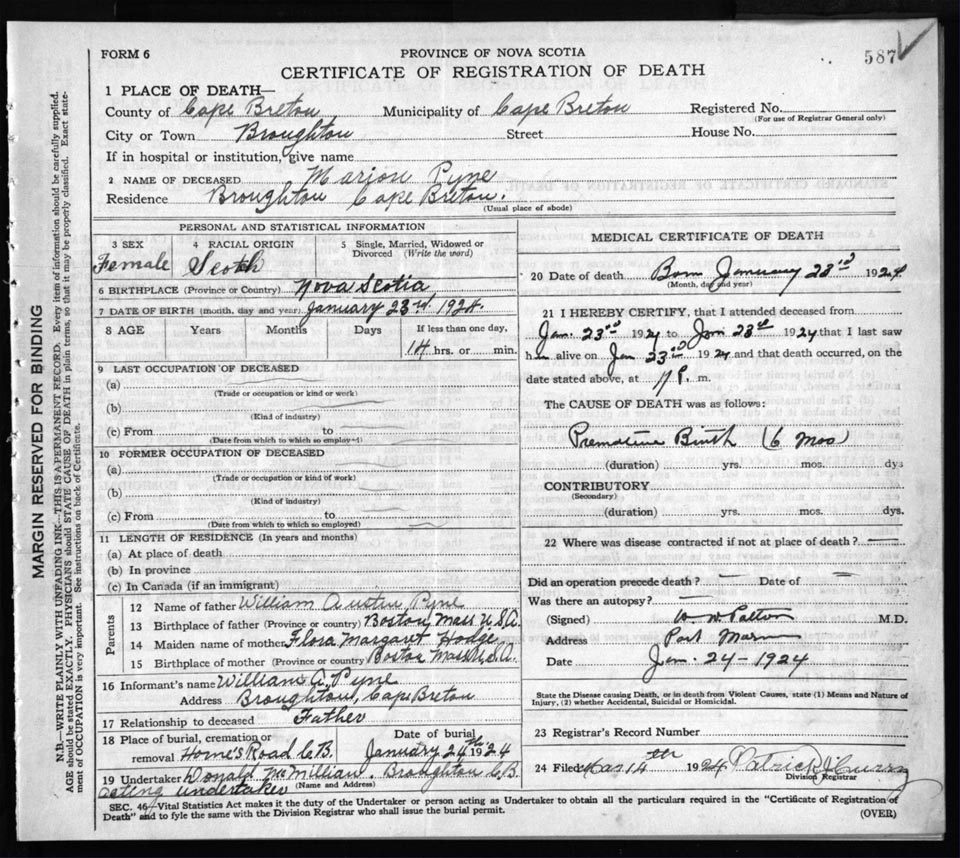 FORM 6
PROVINCE OF NOVA SCOTIA
587
CERTIFICATE OF REGISTRATION OF DEATH
1 PLACE OF DEATH—
County of Cape Breton Municipality of Cape Breton Registered No.
(For use of Registrar General only)
City or Town Broughton Street House No.
If in hospital or institution, give name
2 NAME OF DECEASED Marion Pyne
Residence Broughton Cape Breton
(Usual place of abode)
MARGIN RESERVED FOR BINDING
N.B.—WRITE PLAINLY WITH UNFADING INK—THIS IS A PERMANENT RECORD. Every item of information should be carefully supplied.
AGE should be stated EXACTLY. PHYSICIANS should STATE CAUSE OF DEATH in plain terms, so that it may be properly classified. Exact state-
ment of OCCUPATION is very important. See instructions on back of Certificate.
PERSONAL AND STATISTICAL INFORMATION
3 SEX 4 RACIAL ORIGIN 5 Single, Married, Widowed or
Divorced (Write the word)
Female Scotch
6 BIRTHPLACE (Province or Country) Nova Scotia
7 DATE OF BIRTH (month, day and year) January 23rd 1924
8 AGE Years Months Days If less than one day,
14 hrs. or min.
9 LAST OCCUPATION OF DECEASED
(a)
(Trade or occupation or kind or work)
(b)
(Kind of industry)
(c) From to
(Date from which to which so employed)
10 FORMER OCCUPATION OF DECEASED
(a)
(Trade or occupation or kind of work)
(b)
(Kind of industry)
(c) From to
(Date from which to which so employed)
11 LENGTH OF RESIDENCE (In years and months)
(a) At place of death
(b) In province
(c) In Canada (if an immigrant)
Parents
12 Name of father William Austin Pyne
13 Birthplace of father (Province or country) Boston Mass U.S.A.
14 Maiden name of mother Flora Margaret Hodge
15 Birthplace of mother (Province or country) Boston Mass U.S.A.
16 Informant's name William A. Pyne
Address Broughton, Cape Breton
17 Relationship to deceased Father
18 Place of burial, cremation or Date of burial
removal Horne's Road C.B. January 24th 1924
19 Undertaker Donald McMillian. Broughton C.B.
acting undertaker (Name and Address)
MEDICAL CERTIFICATE OF DEATH
20 Date of death Born January 23rd 1924
(Month, day and year)
21 I HEREBY CERTIFY, that I attended deceased from
Jan. 23rd 1924 to Jan 23rd 1924 that I last saw
h alive on Jan 23rd 1924 and that death occurred, on the
date stated above, at P. m.
The CAUSE OF DEATH was as follows:
Premature Birth (6 mos)
(duration) yrs. mos. dys
CONTRIBUTORY
(Secondary)
(duration) yrs. mos. dys.
22 Where was disease contracted if not at place of death?
Did an operation precede death? Date of
Was there an autopsy?
(Signed) W. W. Patton M.D.
Address Port Morien
Date Jan. 24-1924
State the Disease causing Death, or in death from Violent Causes, state (1) Means and Nature of
Injury, (2) whether Accidental, Suicidal or Homicidal.
23 Registrar's Record Number
24 Filed Mar 14th 1924 Patrick J Curry
Division Registrar
SEC. 46—Vital Statistics Act makes it the duty of the Undertaker or person acting as Undertaker to obtain all the particulars required in the "Certificate of Registration of
Death" and to fyle the same with the Division Registrar who shall issue the burial permit.
(OVER)